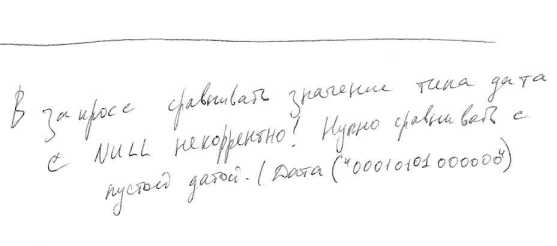 В запросе сравнивать значение типа дата
с NULL некорректно! Нужно сравнивать с
пустой датой. (Дата ("00010101000000")